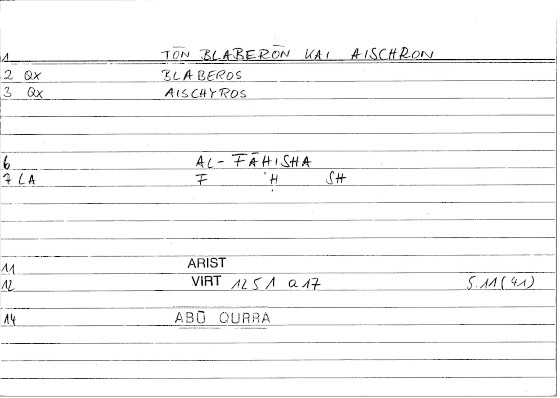 1 TŌN BLABERŌN KAI AISCHRON
2 QX BLABEROS
3 QX AISCHYROS
6 AL-FĀḤISHA
7 LA F Ḥ SH
11 ARIST
12 VIRT 1251 a 17 5.11(41)
14 ABŪ QURRA